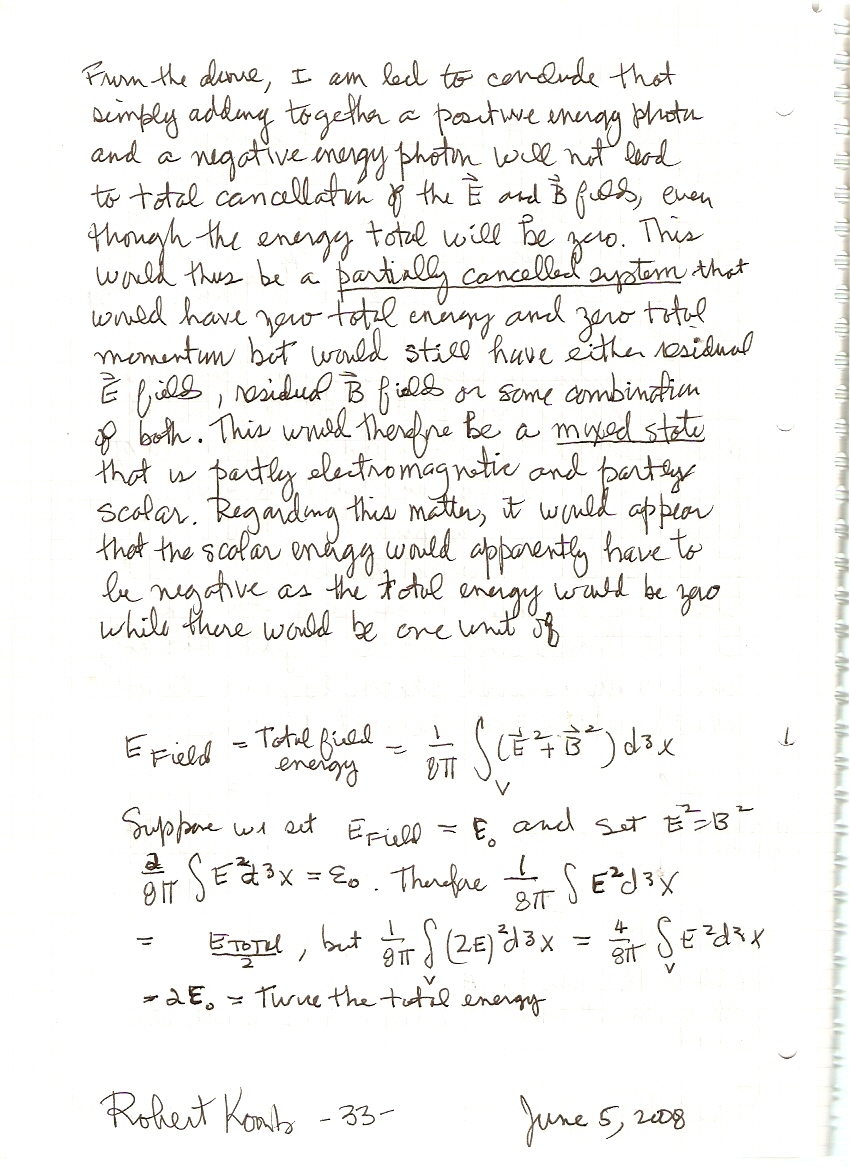 From the above, I am led to conclude that
simply adding together a positive energy photon
and a negative energy photon will not lead
to total cancellation of the E⃗ and B⃗ fields, even
though the energy total will be zero. This
would thus be a partially cancelled system that
would have zero total energy and zero total
momentum but would still have either residual
E⃗ fields, residual B⃗ fields or some combination
of both. This would therefore be a mixed state
that is partly electromagnetic and partly
scalar. Regarding this matter, it would appear
that the scalar energy would apparently have to
be negative as the total energy would be zero
while there would be one unit of
E Field = Total field energy = 1/8π ∫_V (E⃗² + B⃗²) d3x
Suppose we set E Field = E₀ and set E² = B²
2/8π ∫ E² d3x = E₀. Therefore 1/8π ∫ E² d3x
= E TOTAL/2, but 1/8π ∫_V (2E)² d3x = 4/8π ∫_V E² d3x
= 2E₀ = Twice the total energy
Robert Koontz -33- June 5, 2008